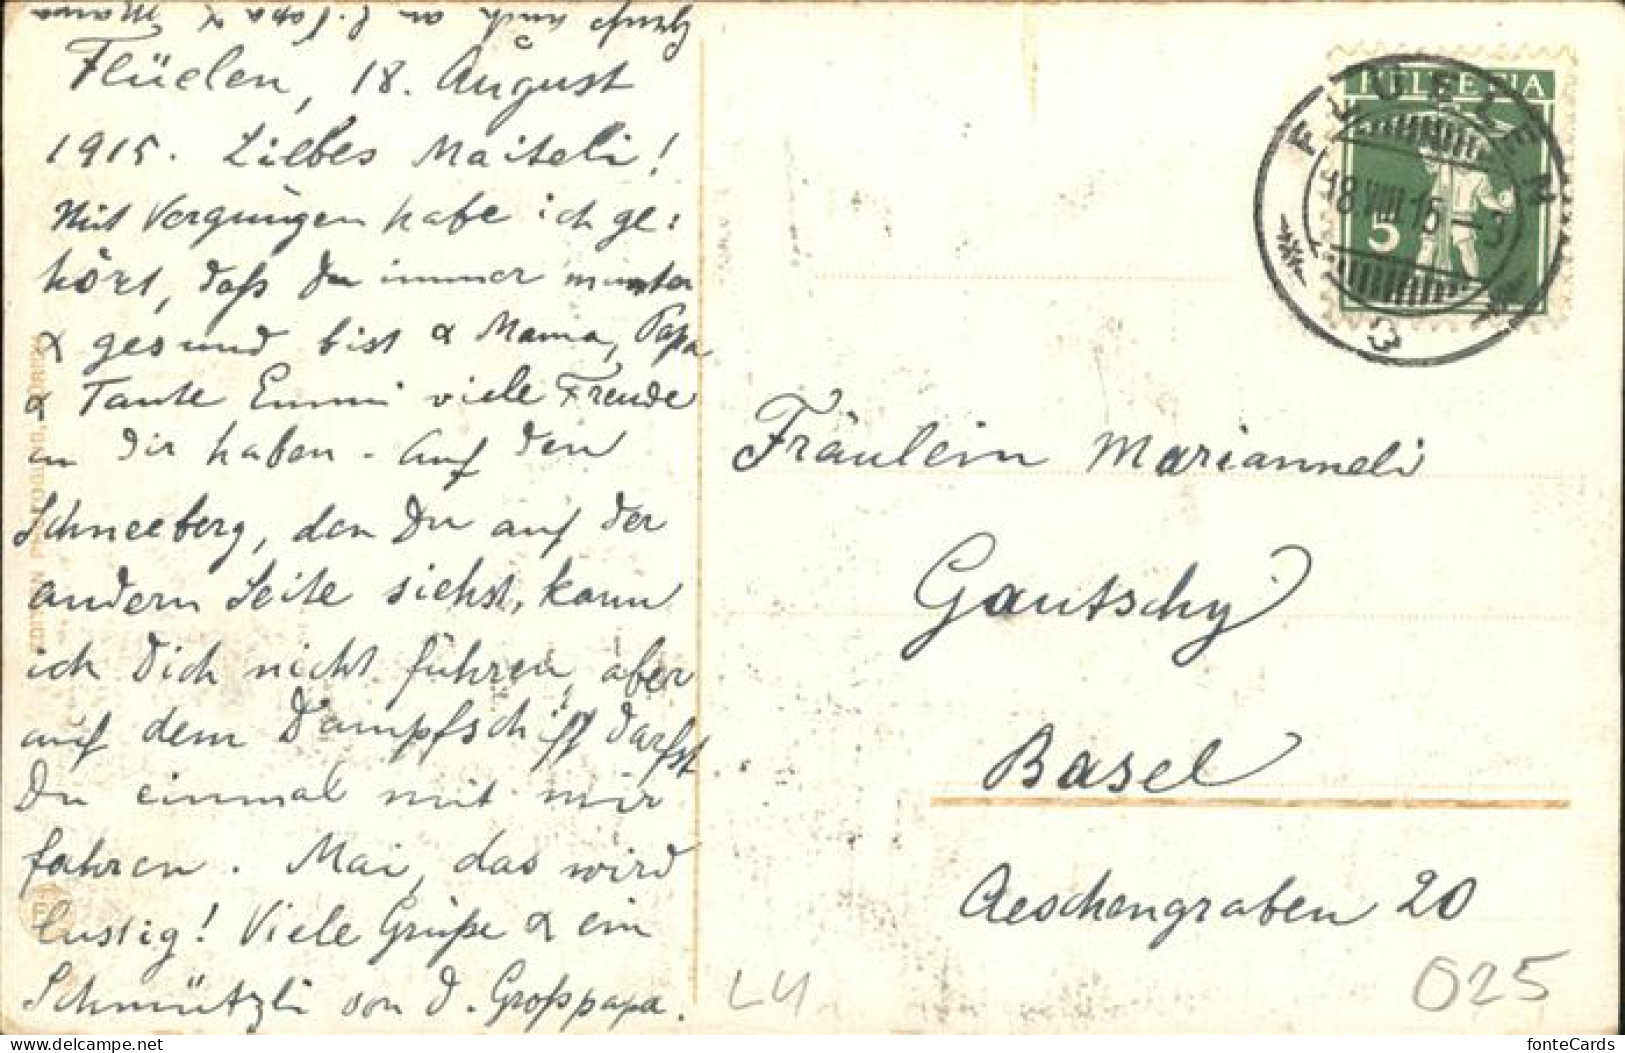 Gruss auch an l. Papa & Mama
Flüelen, 18. August
1915. Liebes Maiteli!
Mit Vergnügen habe ich ge=
hört, daß du immer munter
& gesund bist & Mama, Papa
& Tante Emmi viele Freude
an dir haben. Auf den
Schneeberg, den Du auf der
andern Seite siehst, kann
ich Dich nicht führen, aber
auf dem Dampfschiff darfst
Du einmal mit mir
fahren. Mai, das wird
lustig! Viele Grüße & ein
Schmützli von d. Großpapa.
HELVETIA
5
FLUELEN
18.VIII.15-3
Fräulein Marianneli
Gautschy
Basel
Aeschengraben 20
LU
025
delcampe.net
fonteCards